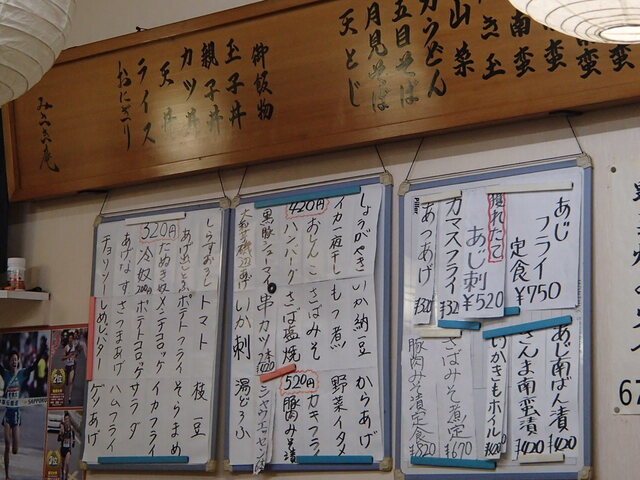 南蛮
き玉
山菜
カうどん
五目そば
月見そば
天とじ
御飯物
玉子丼
親子丼
カツ丼
天丼
ライス
おにぎり
みの天庵
あじ
フライ
定食
¥750
獲れたて
あじ刺
¥520
カマスフライ
¥32
あつあげ
¥320
あじ南ばん漬
¥400
さんま南蛮漬
¥400
いかきもホイル
さばみそ煮定
¥670
豚肉みそ漬定食
¥820
しょうがやき いか納豆 からあげ
イカ一夜干し もつ煮 野菜イタメ
420円 おしんこ さばみそ カキフライ
ハンバーグ さば塩焼 520円 豚みそ漬
黒豚シューマイ 串カツ
いか刺 湯どうふ
しらすおろし トマト 枝豆
あげ出しどふ ポテトフライ そらまめ
320円 たぬき奴 メンチコロッケ イカフライ
冷奴 200円 ポテトコロッケ サラダ
あげなす さつまあげ ハムフライ
チョリソー しめじバター ゲソあげ
67